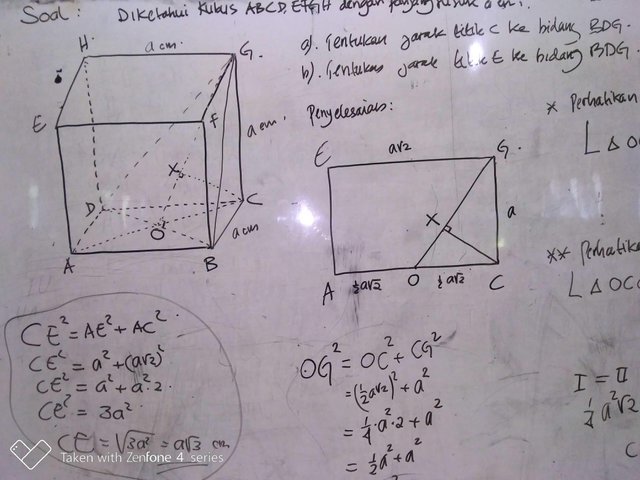 Soal : Diketahui Kubus ABCD.EFGH dengan panjang rusuk a cm.
a). Tentukan jarak titik C ke bidang BDG.
b). Tentukan jarak titik E ke bidang BDG.
Penyelesaian:
H
a cm
G
E
F
a cm
X
D
C
O
a cm
A
B
E
a√2
G
X
a
A
½a√2
O
½a√2
C
* Perhatikan
L Δ OC
** Perhatikan
L Δ OC
CE² = AE² + AC²
CE² = a² + (a√2)²
CE² = a² + a².2
CE² = 3a²
CE = √3a² = a√3 cm
OG² = OC² + CG²
= (½a√2)² + a²
= ¼.a².2 + a²
= ½a² + a²
I = II
¼a²√2
C
Taken with Zenfone 4 series